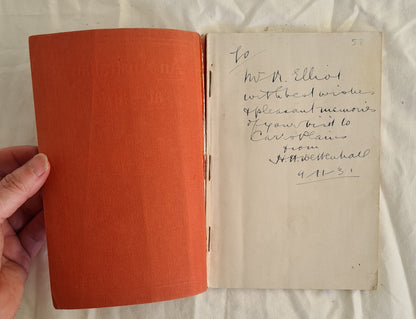 58
To
Mr A. Elliot
with best wishes
& pleasant memories
of your visit to
Carr's Plains
from
H. H. Wettenhall
9/11/31